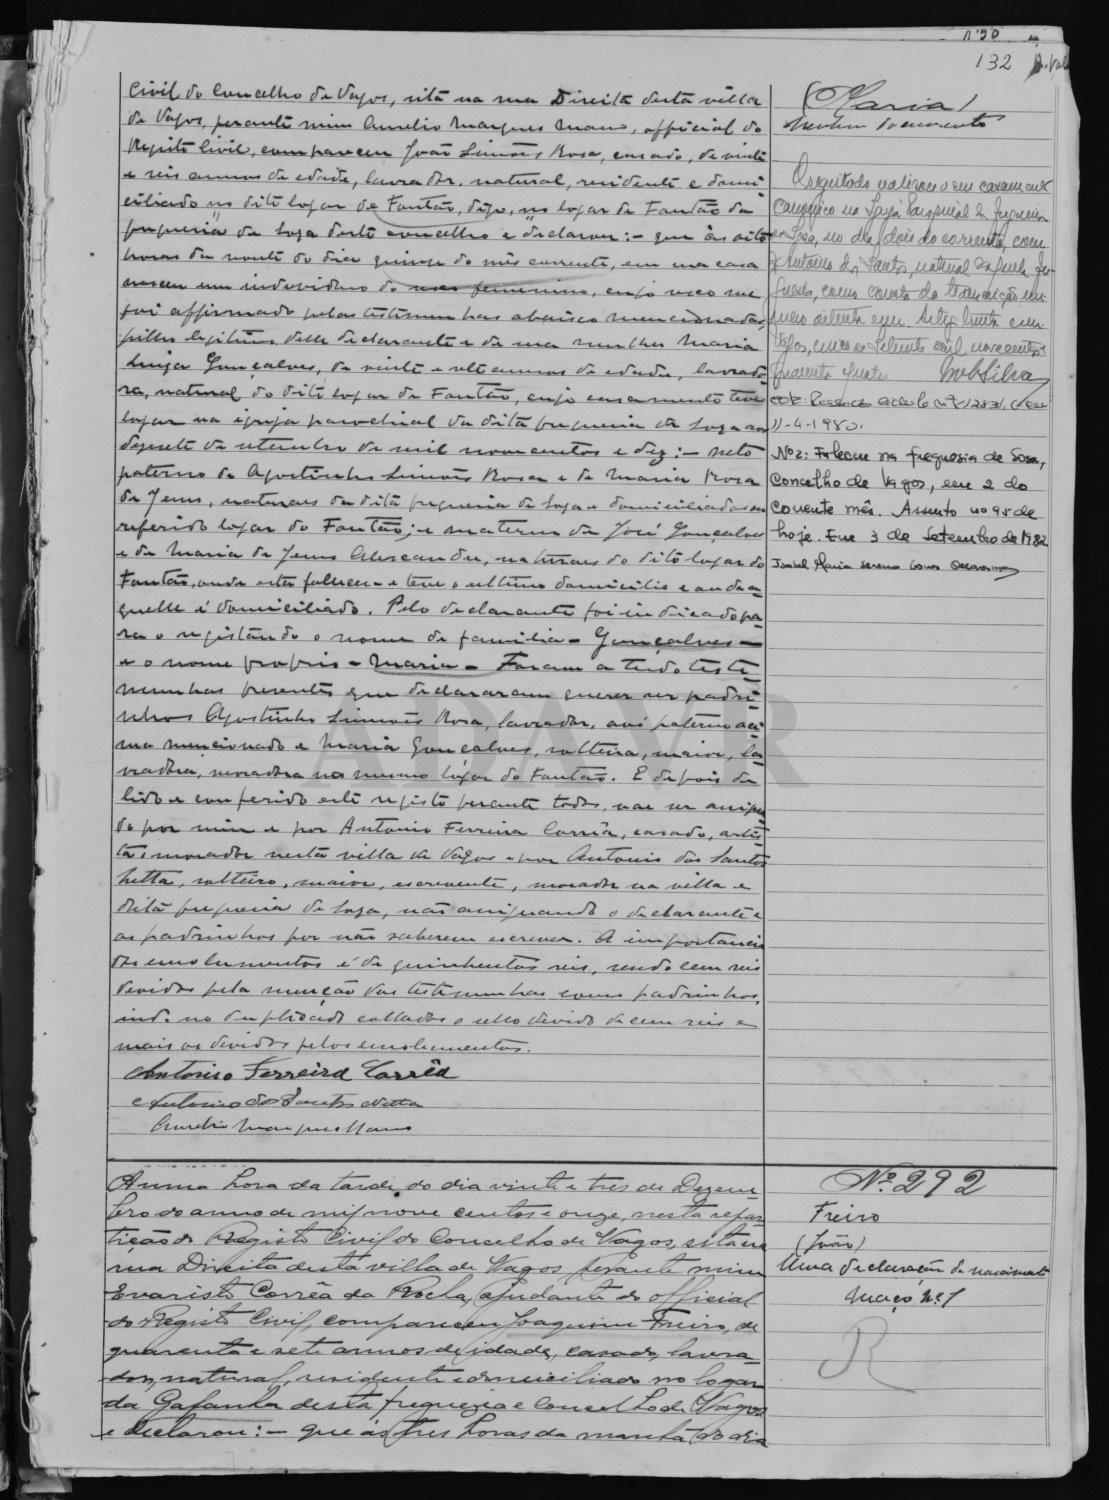 132
Civil do Concelho de Vagos, sita na rua Direita desta villa
de Vagos, perante mim Aurelio Marques Mano, official do
Registo Civil, compareceu João Simões Rosa, casado, de vinte
e seis annos de edade, lavrador, natural, residente e domi-
ciliado no dito logar de Fantão, digo, no logar de Fantão da
freguesia de Soza deste concelho e declarou:- que ás oito
horas da noute do dia quinze do mês corrente, em sua casa
nasceu um individuo do sexo feminino, cujo sexo me
foi affirmado pelas testemunhas abaixo mencionadas,
filho legitimo delle declarante e de sua mulher Maria
Luiza Gonçalves, de vinte e oito annos de edade, lavrado-
ra, natural do dito logar de Fantão, cujo casamento teve
logar na igreja parochial da dita freguesia de Soza aos
dezesete de setembro de mil novecentos e dez:- neto
paterno de Agostinho Simões Rosa e de Maria Rosa
de Jesus, naturaes da dita freguesia de Soza e domiciliados no
referido logar do Fantão; e materno de José Gonçalves
e de Maria de Jesus, naturaes do dito logar do
Fantão, onde esta falleceu e teve o ultimo domicilio e onde a-
quelle é domiciliado. Pelo declarante foi indicado pa-
ra o registando o nome de familia - Gonçalves -
e o nome proprio - Maria - Foram a tudo teste-
munhas presentes que declararam querer ser padri-
nhos Agostinho Simões Rosa, lavrador, avô paterno aci-
ma mencionado e Maria Gonçalves, solteira, maior, la-
vradora, moradora no mesmo logar do Fantão. E depois de
lido e conferido este registo perante todos, vae ser assigna-
do por mim e por Antonio Ferreira Corrêa, casado, artis-
ta, morador nesta villa de Vagos e por Antonio dos Santos
Netta, solteiro, maior, escrevente, morador na villa e
dita freguesia de Soza, não assignando o declarante e
os padrinhos por não saberem escrever. A importancia
dos emolumentos é de quinhentos reis, sendo cem reis
devidos pela menção das testemunhas como padrinhos,
indo no duplicado collados o sello devido de cem reis e
mais os devidos pelos emolumentos.
Antonio Ferreira Corrêa
Antonio dos Santos Netta
Aurelio Marques Mano
(Maria)
Nenhum documento
canonico na Igreja Paroquial
Soza, no dia dois do corrente, com
Antonio dos Santos, natural
11-4-1980.
Nº2: Faleceu na freguesia de Sosa,
Concelho de Vagos, em 2 do
corrente mês. Assento nº 95 de
hoje. Em 3 de Setembro de 1982
Isabel Maria
A uma hora da tarde do dia vinte e tres de Dezem-
bro do anno de mil nove centos e onze, nesta repar-
tição do Registo Civil do Concelho de Vagos, sita na
rua Direita desta villa de Vagos perante mim
Evaristo Corrêa da Rocha, ajudante do official
do Registo Civil, compareceu Joaquim Freiro, de
quarenta e sete annos de idade, casado, lavra-
dor, natural, residente e domiciliado no logar
da Gafanha desta freguezia e Concelho de Vagos
e declarou:- que ás tres horas da manhã do dia
Nº 292
Freiro
(João)
Uma declaração de nascimento
Maço Nº 1
R
ADAVR